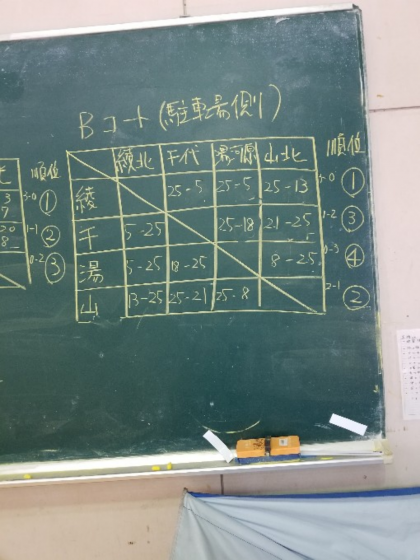 Bコート(駐車場側)
綾北 千代 湯河原 山北 順位
綾 25-5 25-5 25-13 3-0 ①
千 5-25 25-18 21-25 1-2 ③
湯 5-25 18-25 8-25 0-3 ④
山 13-25 25-21 25-8 2-1 ②
順位
①
1-1 ②
0-2 ③